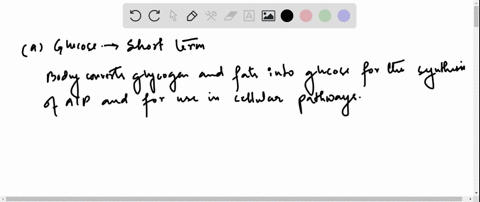 (a) Glucose → Short term
Body converts glycogen and fats into glucose for the synthesis
of ATP and for use in cellular pathways.